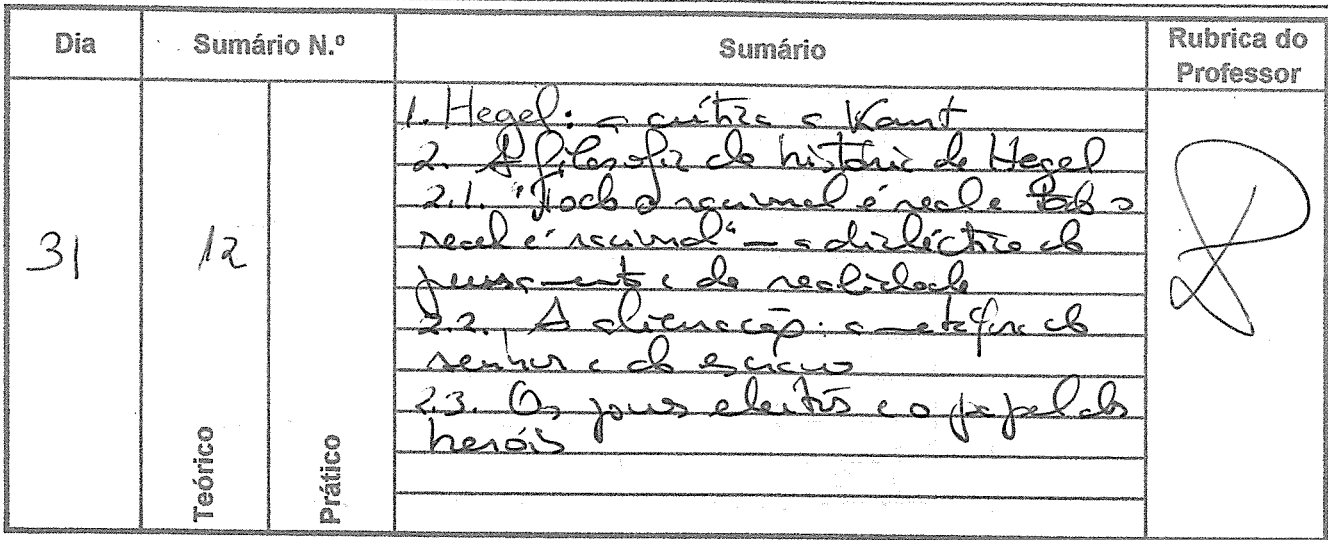 Dia
Sumário N.º
Sumário
Rubrica do
Professor
31
12
Teórico
Prático
1. Hegel: a crítica a Kant
2. A filosofia da história de Hegel
2.1. "Todo o racional é real e todo o
real é racional" – a dialéctica do
pensamento e da realidade
2.2. A alienação: a metáfora do
senhor e do escravo
2.3. Os povos eleitos e o papel dos
heróis